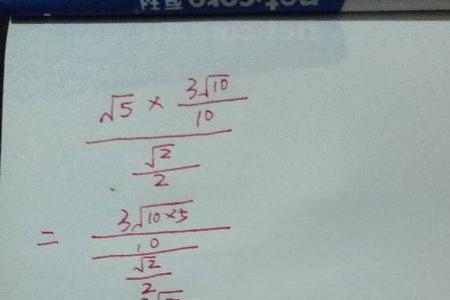 √5 × 3√10
10
√2
2
= 3√10×5
10
√2
2